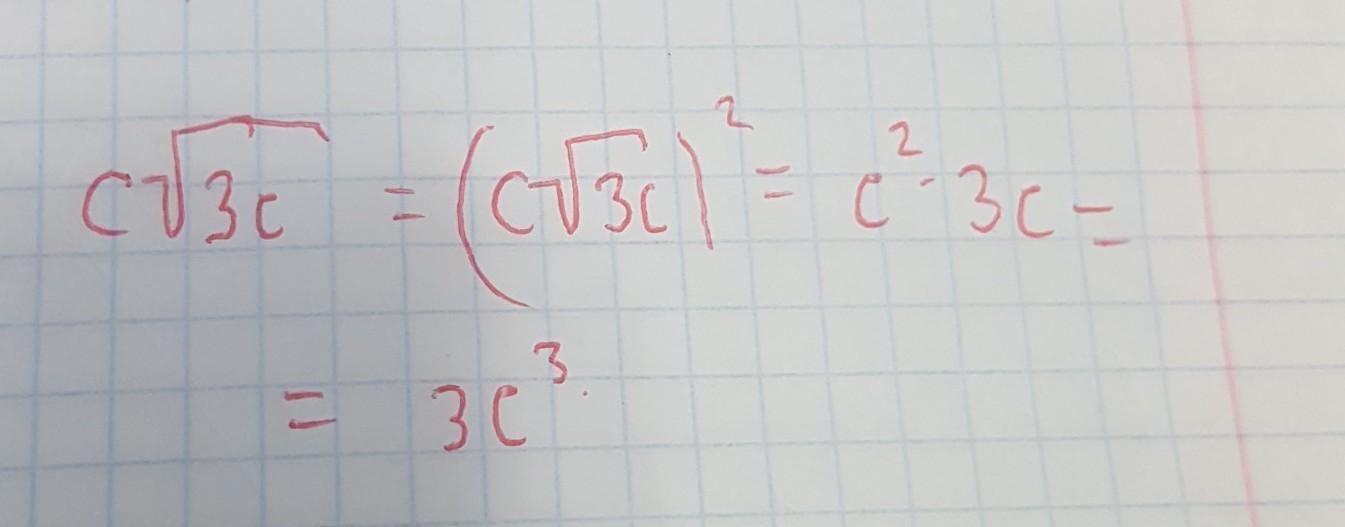 c√3c = (c√3c)² = c² · 3c =
= 3c³.